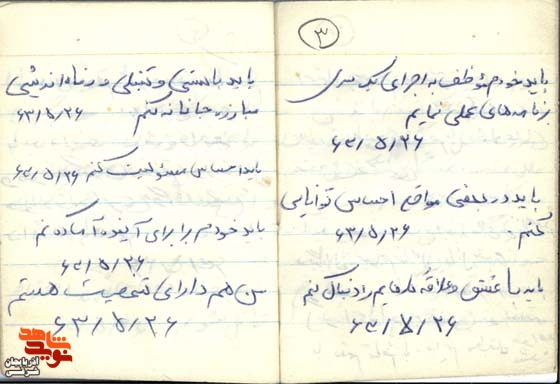 ۳
باید خودم مؤظف به اجرای یک سری
برنامه‌های عملی نمایم
۶۳/۵/۲۶
باید در بعضی مواقع احساس توانایی
کنم. ۶۳/۵/۲۶
باید با عشق و علاقه کارهایم را دنبال کنم
۶۳/۵/۲۶
باید با سستی و تنبلی و رفاه اندیشی
مبارزه جانانه کنم ۶۳/۵/۲۶
باید احساس مسئولیت کنم ۶۳/۵/۲۶
باید خودم را برای آینده آماده کنم
۶۳/۵/۲۶
من هم دارای شخصیت هستم
۶۳/۵/۲۶
نوید شاهد
آذربایجان غربی